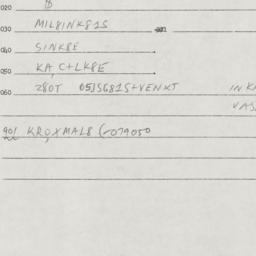 020
030 MIL8INK81S
040 SINK8E
050 KA,C+LK8E
060 280T 051S681S+VENKT INKA
VAS
901 KRO,XMAL8 (-079050